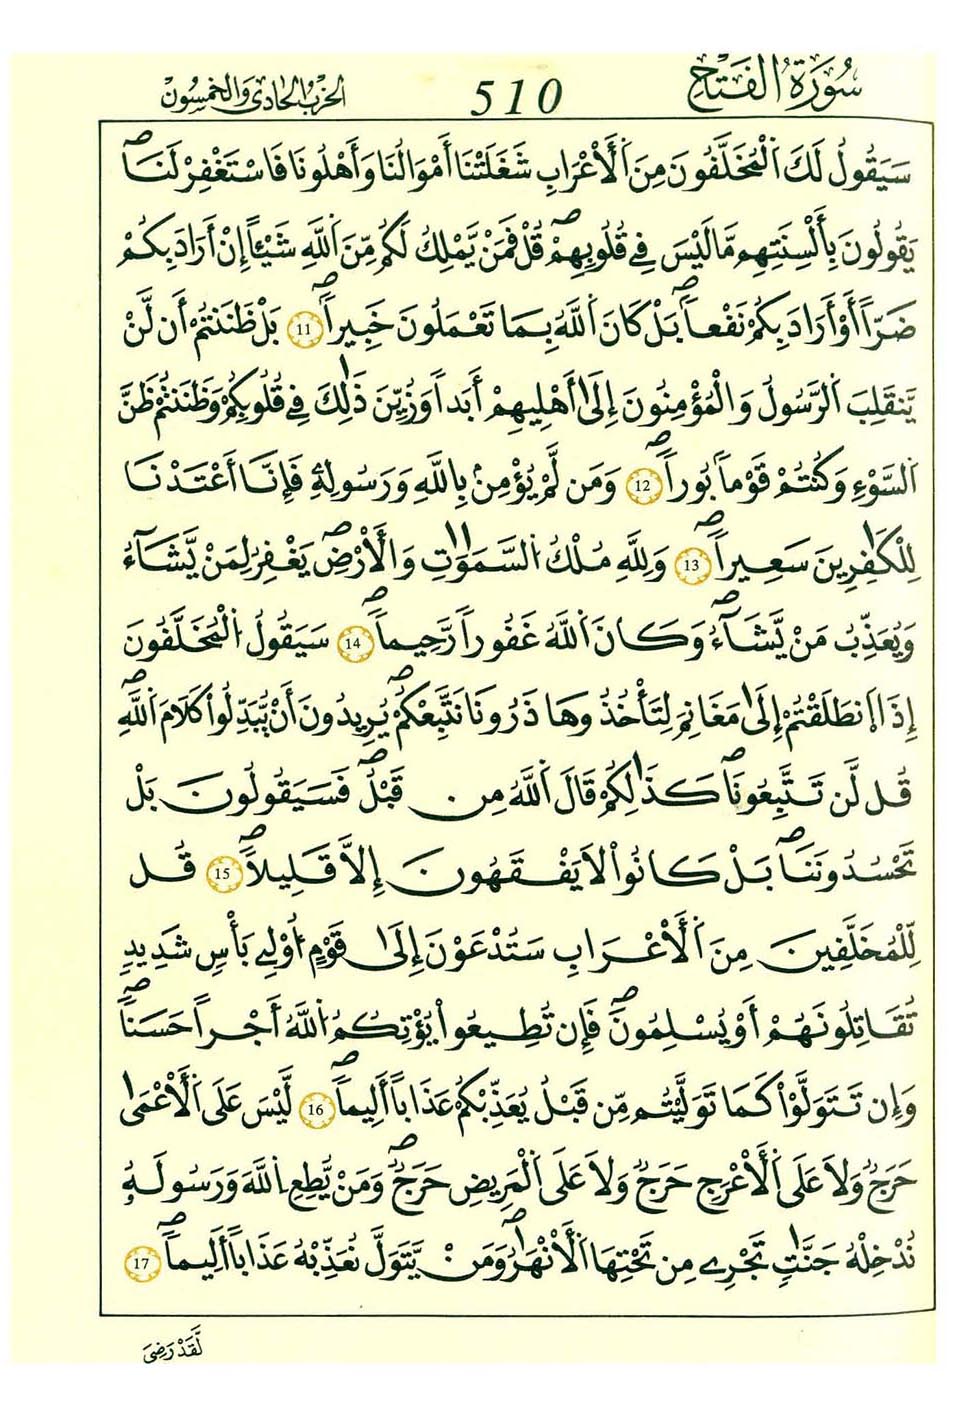 سُورَةُ الْفَتْحِ 510 الحِزْبُ الحَادِى وَالخَمْسُونَ
سَيَقُولُ لَكَ اَ۬لْمُخَلَّفُونَ مِنَ اَ۬لْأَعْرَابِ شَغَلَتْنَا أَمْوَالُنَا وَأَهْلُونَا فَاسْتَغْفِرْ لَنَاۖ
يَقُولُونَ بِأَلْسِنَتِهِم مَّا لَيْسَ فِے قُلُوبِهِمْۖ قُلْ فَمَنْ يَّمْلِكُ لَكُم مِّنَ اَ۬للَّهِ شَيْـٔاً إِنْ أَرَادَ بِكُمْ
ضَرّاً أَوْ أَرَادَ بِكُمْ نَفْعاًۖ بَلْ كَانَ اَ۬للَّهُ بِمَا تَعْمَلُونَ خَبِيراًۖ 11 بَلْ ظَنَنتُمُۥ أَن لَّنْ
يَّنقَلِبَ اَ۬لرَّسُولُ وَالْمُؤْمِنُونَ إِلَىٰ أَهْلِيهِمُۥ أَبَداً وَزُيِّنَ ذَٰلِكَ فِے قُلُوبِكُمْ وَظَنَنتُمْ ظَنَّ
اَ۬لسَّوْءِ وَكُنتُمْ قَوْماَۢ بُوراًۖ 12 وَمَن لَّمْ يُؤْمِنۢ بِاللَّهِ وَرَسُولِهِۦ فَإِنَّا أَعْتَدْنَا
لِلْكَٰفِرِينَ سَعِيراًۖ 13 وَلِلَّهِ مُلْكُ اُ۬لسَّمَٰوَٰتِ وَالْأَرْضِۖ يَغْفِرُ لِمَنْ يَّشَآءُ
وَيُعَذِّبُ مَنْ يَّشَآءُۖ وَكَانَ اَ۬للَّهُ غَفُوراً رَّحِيماًۖ 14 سَيَقُولُ اُ۬لْمُخَلَّفُونَ
إِذَا اَ۪نطَلَقْتُمُۥ إِلَىٰ مَغَانِمَ لِتَأْخُذُوهَا ذَرُونَا نَتَّبِعْكُمْۖ يُرِيدُونَ أَنْ يُّبَدِّلُواْ كَلَامَ اَ۬للَّهِۖ
قُل لَّن تَتَّبِعُونَاۖ كَذَٰلِكُمْ قَالَ اَ۬للَّهُ مِن قَبْلُۖ فَسَيَقُولُونَ بَلْ
تَحْسُدُونَنَاۖ بَلْ كَانُواْ لَا يَفْقَهُونَ إِلاَّ قَلِيلاًۖ 15 قُل
لِّلْمُخَلَّفِينَ مِنَ اَ۬لْأَعْرَابِ سَتُدْعَوْنَ إِلَىٰ قَوْمٍ ا۟وْلِے بَأْسٍ شَدِيدٍ
تُقَاتِلُونَهُمُۥ أَوْ يُسْلِمُونَۖ فَإِن تُطِيعُواْ يُؤْتِكُمُ اُ۬للَّهُ أَجْراً حَسَناًۖ
وَإِن تَتَوَلَّوْاْ كَمَا تَوَلَّيْتُم مِّن قَبْلُ يُعَذِّبْكُمْ عَذَاباً أَلِيماًۖ 16 لَّيْسَ عَلَى اَ۬لْأَعْمَىٰ
حَرَجٌ وَلَا عَلَى اَ۬لْأَعْرَجِ حَرَجٌ وَلَا عَلَى اَ۬لْمَرِيضِ حَرَجٌۖ وَمَنْ يُّطِعِ اِ۬للَّهَ وَرَسُولَهُۥ
نُدْخِلْهُ جَنَّٰتٍ تَجْرِے مِن تَحْتِهَا اَ۬لْأَنْهَٰرُۖ وَمَنْ يَّتَوَلَّ نُعَذِّبْهُ عَذَاباً أَلِيماًۖ 17
لَّقَدْ رَضِيَ